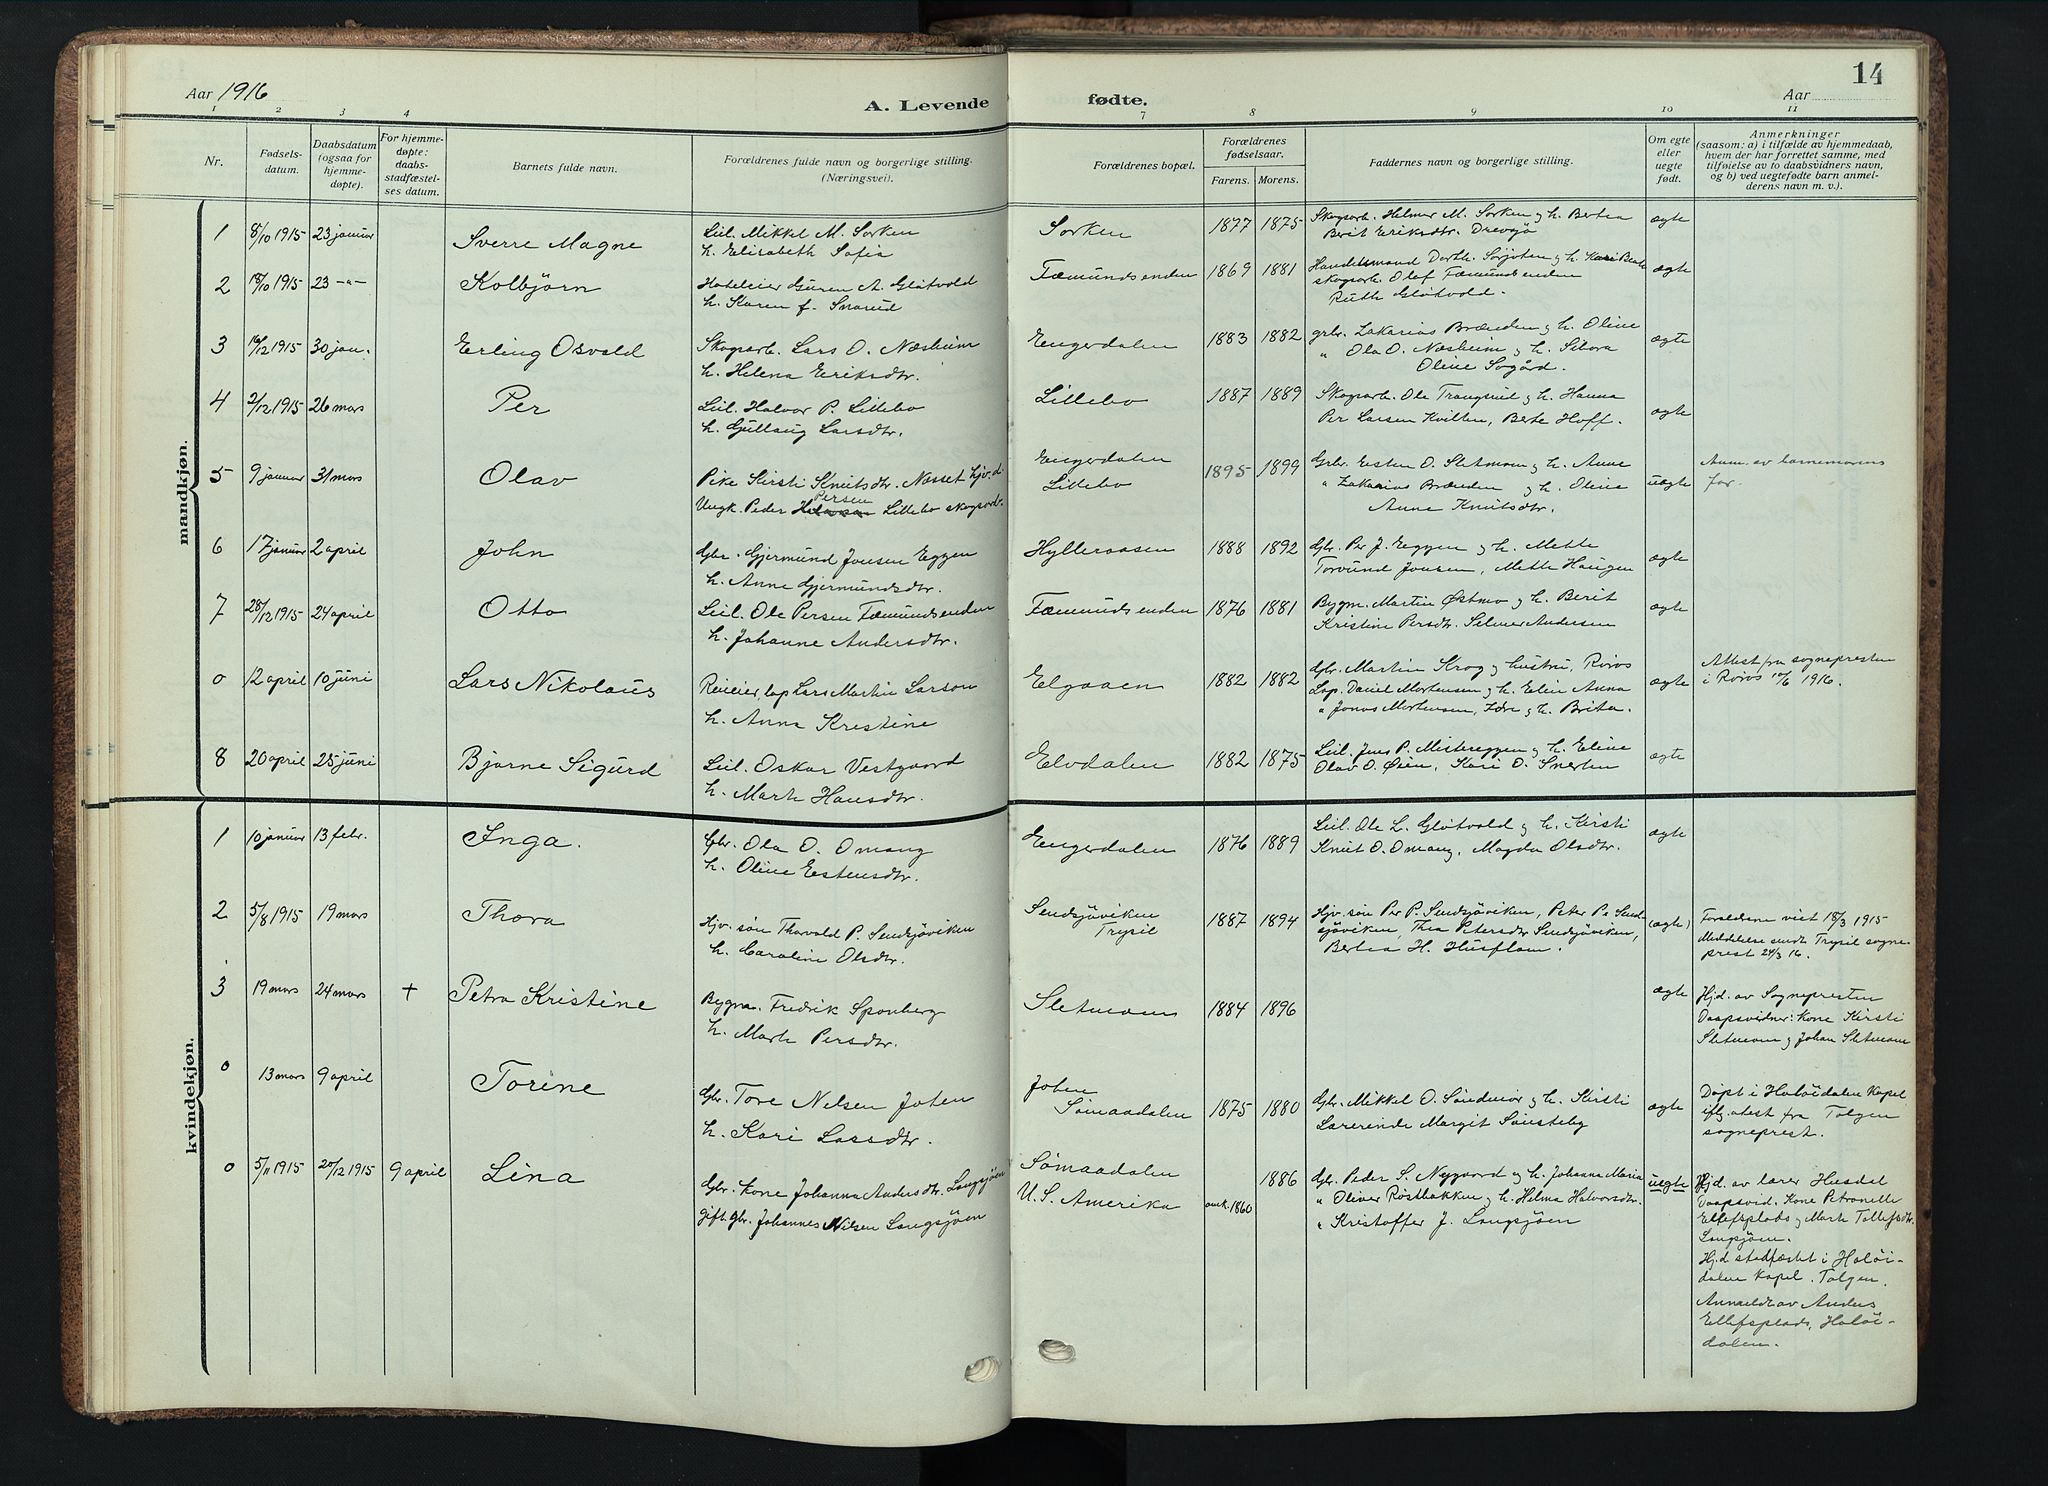 Aar 1916
A. Levende
fødte.
14
Aar
1 2 3 4 7 8 9 10 11
Nr.
Fødsels-
datum.
Daabsdatum
(ogsaa for
hjemme-
døpte).
For hjemme-
døpte:
daabs-
stadfæstel-
ses datum.
Barnets fulde navn.
Forældrenes fulde navn og borgerlige stilling.
(Næringsvei).
Forældrenes bopæl.
Forældrenes
fødselsaar.
Farens. Morens.
Faddernes navn og borgerlige stilling.
Om egte
eller
uegte
født.
Anmerkninger
(saasom: a) i tilfælde av hjemmedaab,
hvem der har forrettet samme, med
tilføielse av to daabsvidners navn,
og b) ved uegtefødte barn anmel-
derens navn m. v.).
mandkjøn.
1 8/10 1915 23 januar Sverre Magne
Leil. Mikkel M. Sorken
h. Elisabeth Sofia
Sorken 1877 1875
Skogsarb. Helmer M. Sorken og h. Bertea
Berit Eriksdtr. Drevsjø
ægte
2 /10 1915 23 -"- Kolbjörn
Hoteleier Guren A. Glötvold
h. Karen f. Snarud
Fæmundsenden 1869 1881
Handelsmand Dorth. Sorjoten og h. Kari Beate
skogsarb. Olof Fæmundsenden
Ruth Glötvold.
ægte
3 16/12 1915 30 jan. Erling Osvald
Skogsarb. Lars O. Næsheim
h. Helena Eriksdtr.
Engerdalen 1883 1882
grbr. Zakarias Brænden og h. Oline
" Ola O. Næsheim og h. Sibora
Oline Sogård.
ægte
4 2/12 1915 26 mars Per
Leil. Halvor P. Lillebo
h. Gullaug Larsdtr.
Lillebo 1887 1889
Skogsarb. Ole Trangsvil og h. Hanna
Per Larsen Kvilten, Berte Hoff.
ægte
5 9 januar 31 mars Olav
Pike Kirsti Knutsdtr. Næsset hjv. d.
Persen
Ungk. Peder Lillebo skogsarb.
Engerdalen
Lillebo
1895 1899
Grbr. Esten O. Sletmoen og h. Anne
" Zakarias Brænden og h. Oline
Anne Knutsdtr.
uægte
Anm. av barnemorens
far.
6 17 januar 2 april John
Gbr. Gjermund Jonsen Eggen
h. Anne Gjermundsdtr.
Hylleraasen 1888 1892
Gbr. Per J. Eggen og h. Mette
Torvund Jonsen, Mette Haugen
ægte
7 28/12 1915 24 april Otto
Leil. Ole Persen Fæmundsenden
h. Johanne Andersdtr.
Fæmundsenden 1876 1881
Bygm. Martin Østmo og h. Berit
Kristine Persdtr. Selmer Andersen
ægte
0 12 april 10 juni Lars Nikolaus
Reneier lap Lars Martin Larson
h. Anna Kristine
Elgaaen 1882 1882
Gbr. Martin Krog og hustru, Røros
Lap. Daniel Mortensen og h. Elin Anna
" Jonas Mortensen, Fdre og h. Brita.
ægte
Attest fra sognepresten
i Røros 10/6 1916.
8 20 april 25 juni Bjarne Sigurd
Leil. Oskar Vestgaard
h. Marte Hansdtr.
Elvdalen 1882 1875
Leil. Jens P. Mistereggen og h. Eline
Olav O. Øien, Kari O. Snerten
ægte
kvindekjøn.
1 10 januar 13 febr. Inga.
Gbr. Ola O. Omang
h. Oline Estensdtr.
Engerdalen 1876 1889
Leil. Ole L. Glötvold og h. Kirsti
Knut O. Omang, Magda Olsdtr.
ægte
2 5/8 1915 19 mars Thora
Hjv. søn Thorvald P. Sendsjöviken
h. Caroline Olsdtr.
Sendsjöviken
Trysil
1887 1894
Hjv. søn Per P. Sendsjöviken, Peter Ps Send-
sjöviken, Thea Petersdtr Sendsjöviken,
Bertea H. Husfloen.
(ægte)
Forældrene viet 18/3 1915
Meddelelse sendt Trysil sogne-
prest 24/3 16.
3 19 mars 24 mars + Petra Kristine
Bygm. Fredrik Sponberg
h. Marte Persdtr.
Sletmoen 1884 1896
ægte
Hjd. av Sognepresten
Daapsvidner: Kone Kirsti
Sletmoen og Johan Sletmoen
0 13 mars 9 april Torine
Gbr. Tore Nelsen Joten
h. Kari Lassdtr.
Joten
Sömaadalen
1875 1880
Gbr. Mikkel O. Sundmör og h. Kirsti
Lærerinde Margit Sunsteby
ægte
Döpt i Holöidalen Kapel
iflg. atest fra Tolgen
sogneprest.
0 5/11 1915 20/12 1915 9 april Lina
Gbr. Kone Johanna Andersdtr. Langsjøen
gift. Gbr. Johannes Nelsen Langsjøen
Sömaadalen
U.S. Amerika
omk. 1860 1886
Gbr. Peder S. Nygaard og h. Johanna Maria
" Oliver Röstbakken og h. Helma Halvorsdtr.
" Kristoffer J. Langsjøen
uegte
Hjd. av lærer Husdal
Daapsvid. Kone Petronelle
Ellefsplads og Marte Tollefsdtr.
Langsjøen.
Hjd stadfæstet i Holöi-
dalen Kapel. Tolgen.
Anmeldt av Anders
Ellefsplads, Holöi-
dalen.